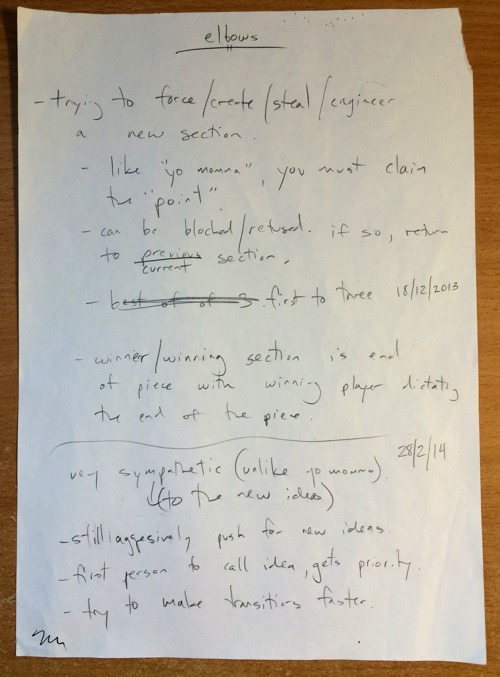 elbows
- trying to force/create/steal/engineer
a new section.
- like "yo momma", you must claim
the "point".
- can be blocked/refused. if so, return
to previous section.
current
- best of of 3. first to three 18/12/2013
- winner/winning section is end
of piece with winning player dictating
the end of the piece.
28/2/14
very sympathetic (unlike yo momma).
(to the new ideas)
- still aggesively push for new ideas.
- first person to call idea, gets priority.
- try to make transitions faster.